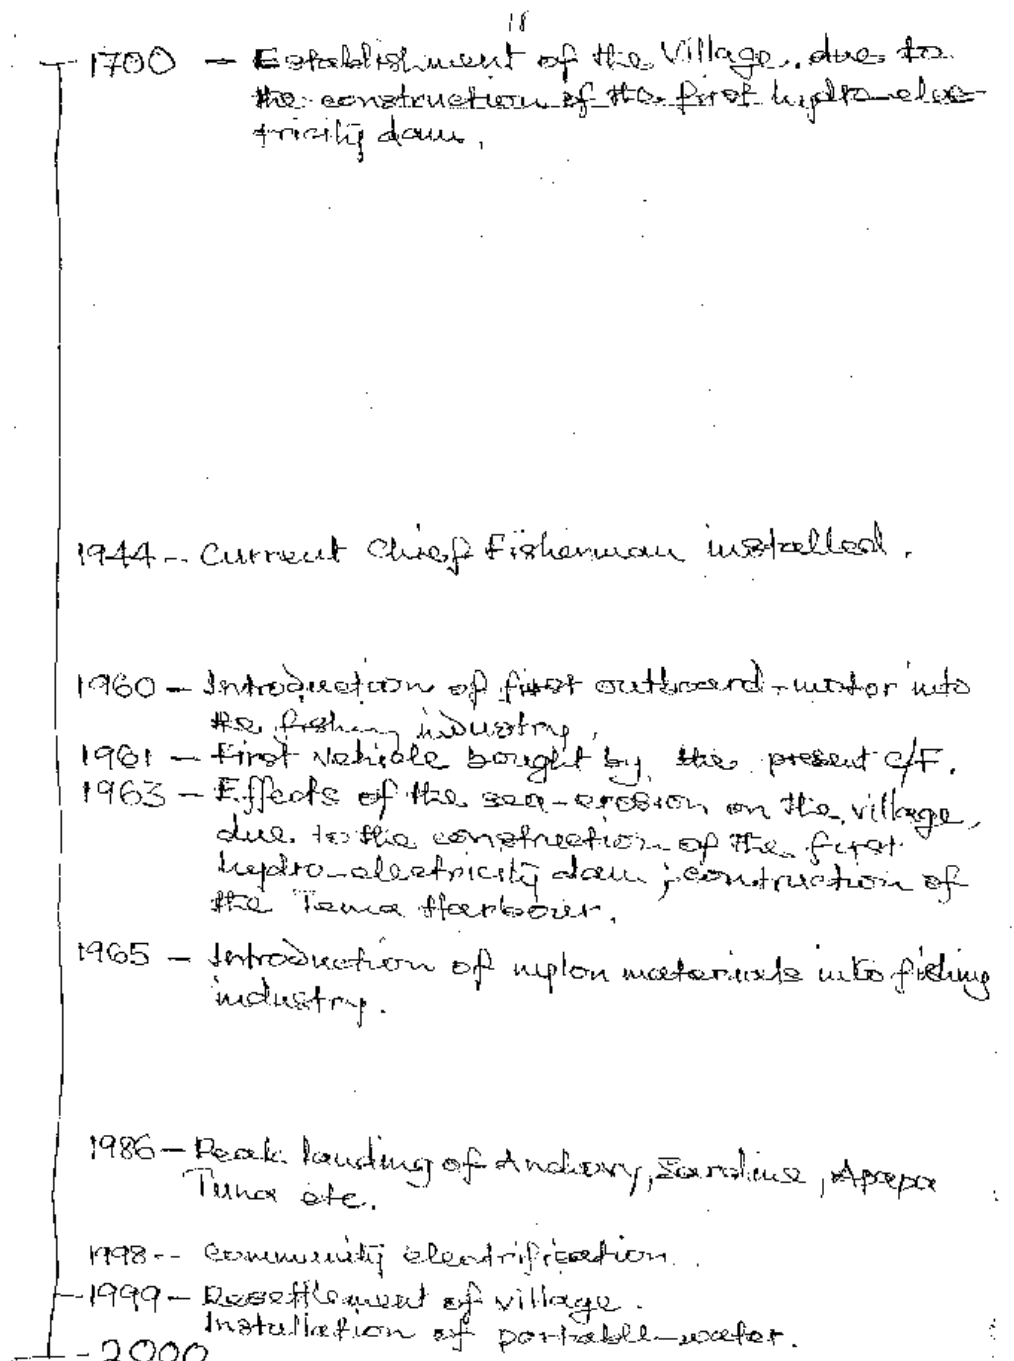 18
1700 - Establishment of the Village, due to
the construction of the first hydro-elec-
tricity dam.
1944 - Current Chief Fisherman installed.
1960 - Introduction of first outboard-motor into
the fishing industry.
1961 - First Vehicle bought by the present C/F.
1963 - Effects of the sea-erosion on the village,
due to the construction of the first
hydro-electricity dam; construction of
the Tema Harbour.
1965 - Introduction of nylon materials into fishing
industry.
1986 - Peak landing of Anchovy, Sardine, Apapa
Tuna etc.
1998 - Community electrification.
1999 - Resettlement of village.
Installation of portable-water.
2000